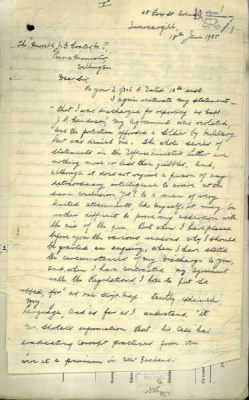 Invercargill,
18th June 1925
The Honorable J.G. Coates M.P.
Prime Minister
Wellington
Dear Sir
To your 2/ Dated 12th inst.
I again reiterate my statements -
"that I was discharged for reporting on Capt.
my agreement was violated,
and the protection afforded a Soldier by Military
law was denied me. The whole series of
statements in the Defence Minister's Letter are
nothing more or less than quibbles. And,
although it does not require a person of very
extraordinary intelligence to arrive at the
same conclusion, yet to a man of very
limited attainments, like myself, it may be
rather difficult to prove my assertion with
the aid of the pen. But when I have placed
before you the various reasons why I should
be granted an enquiry, when I have stated
the circumstances of my discharge to you,
and when I have contrasted my agreement
with the Regulations, I hope to put the
my
language, and as far as I understand it
Mr
information that he has had
corrupt practices from
are at a premium in New Zealand.